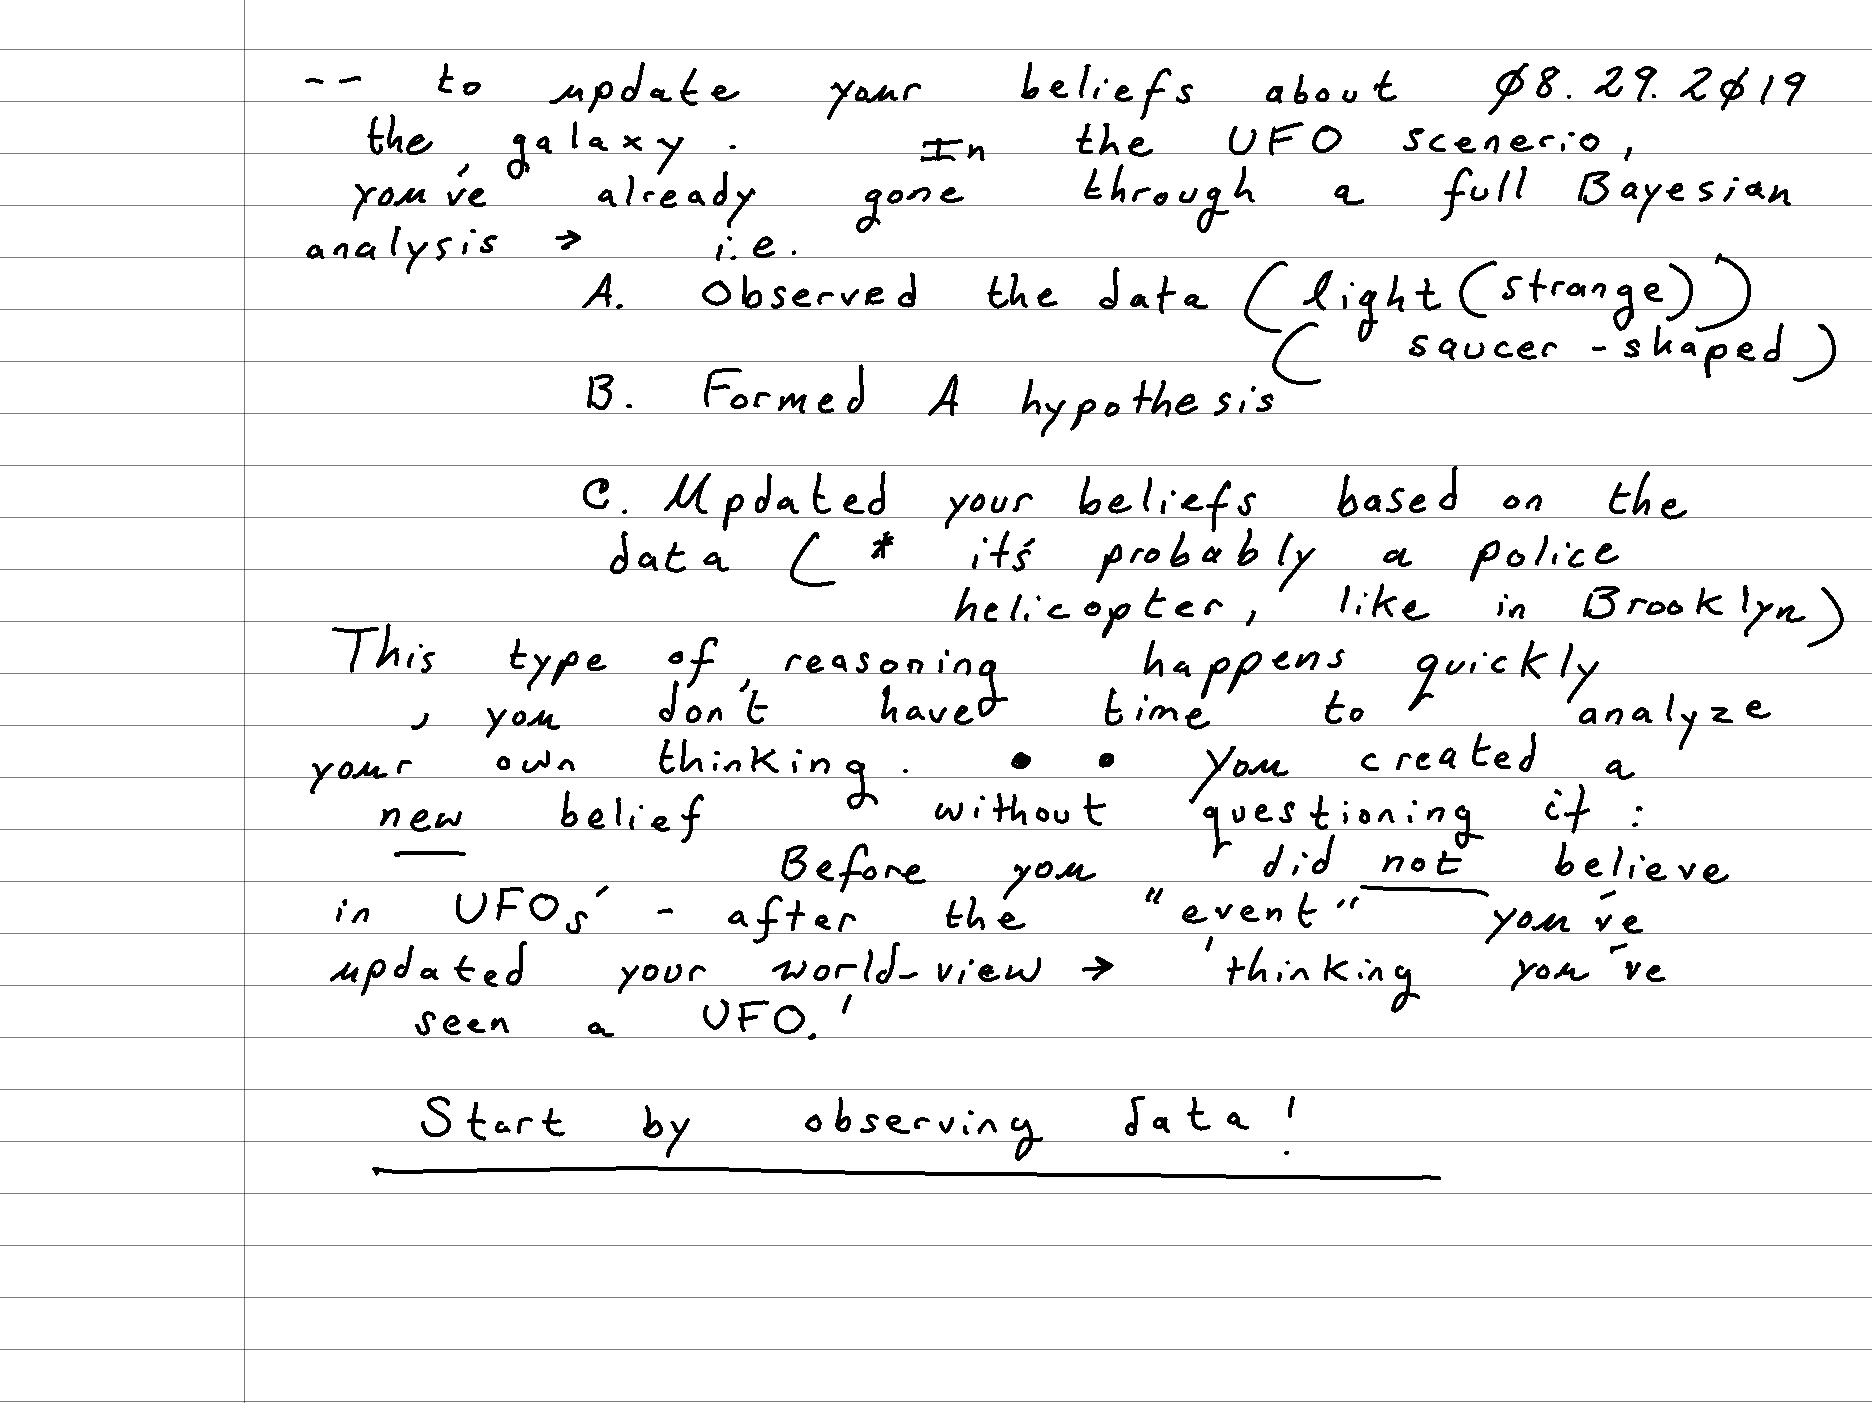 -- to update your beliefs about Ø8.29.2Ø19
the galaxy. In the UFO scenerio,
you've already gone through a full Bayesian
analysis → i.e.
A. Observed the data (light (strange))
(saucer-shaped)
B. Formed A hypothesis
C. Updated your beliefs based on the
data (* it's probably a police
helicopter, like in Brooklyn)
This type of reasoning happens quickly
, you don't have time to analyze
your own thinking. • • You created a
new belief without questioning it:
Before you did not believe
in UFOs' - after the "event" you've
updated your world-view → 'thinking you've
seen a UFO.'
Start by observing data!